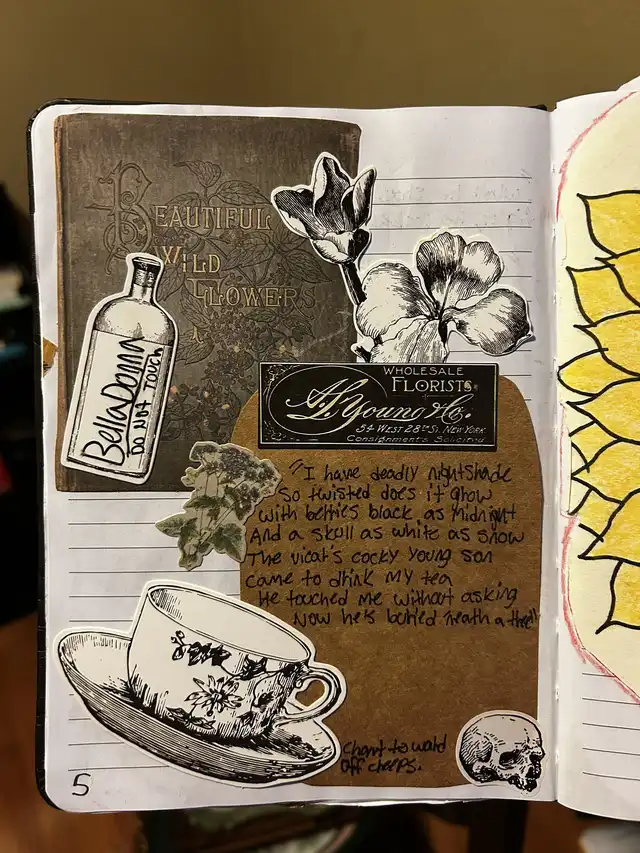 BEAUTIFUL
WILD
FLOWERS
BellaDonna
DO NOT TOUCH
WHOLESALE
FLORISTS.
A.L. Young & Co.
54 WEST 28TH ST. NEW YORK
Consignments Solicited
"I have deadly nightshade
So twisted does it grow
with berries black as midnight
And a skull as white as snow
The vicar's cocky young son
came to drink my tea
He touched me without asking
Now he's buried 'neath a tree"
Chant to ward
off creeps.
5